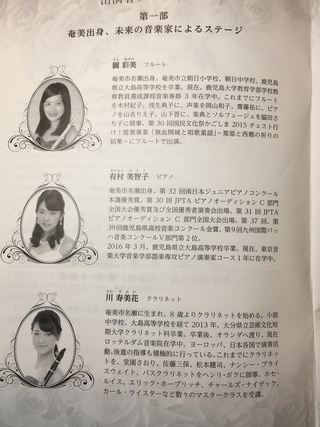 第一部
奄美出身、未来の音楽家によるステージ
彩美 フルート
奄美市名瀬出身。奄美市立朝日小学校、朝日中学校、鹿児島
県立大島高等学校を卒業。現在、鹿児島大学教育学部学校教
育教員養成課程音楽専修 3 年在学中。これまでにフルート
を木村紀子、浅生典子に、声楽を岡山和子、齋藤祐に、ピア
ノを山名りえ子、山下晋に、楽典とソルフェージュを脇田さ
ち子に師事。第 30 回国民文化祭かごしま 2015 チェスト行
け!音楽事業『無血開城と唱歌童謡』~篤姫と西郷の祈りの
結集~にフルートで出演。
有村 美智子 ピアノ
奄美市名瀬出身。第 32 回南日本ジュニアピアノコンクール
本選優秀賞。第 30 回 JPTA ピアノオーディション C 部門
全国大会優秀賞及び全国優秀者演奏会出場。第 31 回 JPTA
ピアノオーディション C 部門全国大会出場。第 37 回、第
39回鹿児島県高校音楽コンクール金賞。第9回九州国際バッ
ハ音楽コンクールV部門第 2 位。
2016 年 3 月、鹿児島県立大島高等学校卒業。現在、東京音
楽大学音楽学部器楽専攻ピアノ演奏家コース 1 年に在学中。
川 寿美花 クラリネット
奄美市名瀬に生まれ、8 歳よりクラリネットを始める。小宿
中学校、大島高等学校を経て 2013 年、大分県立芸術文化短
期大学クラリネット科卒業。卒業後、オランダへ渡り、現在
ロッテルダム音楽院在学中。ヨーロッパ、日本各国で演奏活
動、後進の指導も積極的に行っている。これまでにクラリネッ
トを、堂園さおり、佐藤三保、松本健司、ナンシー・ブライ
スウェイト、バスクラリネットをヘンリ・ボクに師事。ホセ・
ルイス、エリック・ホープリッチ、チャールズ・ナイデック、
カール・ライスターなど数々のマスタークラスを受講。